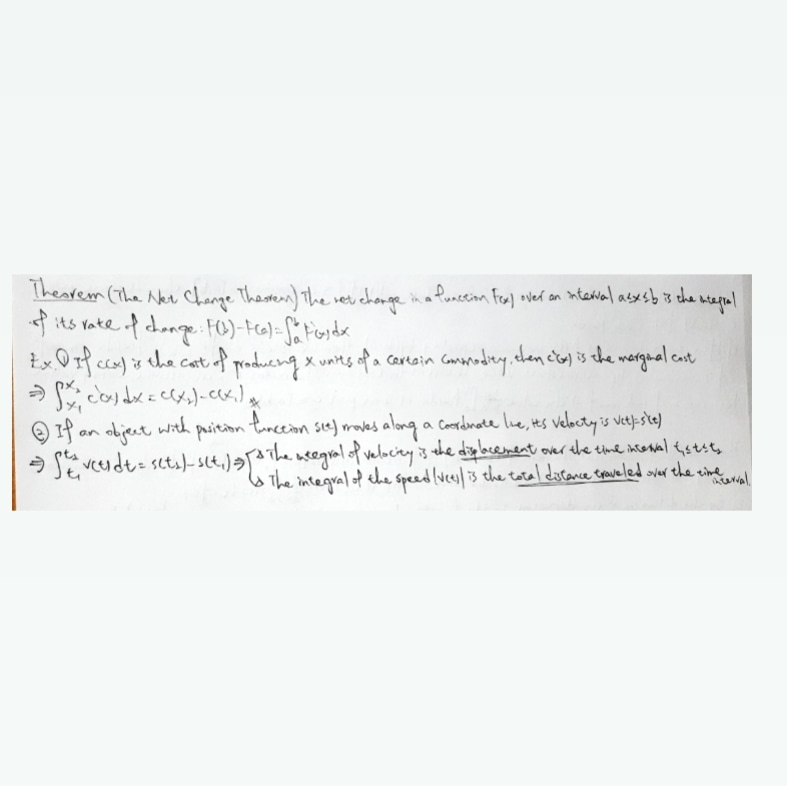 Theorem (The Net Change Theorem) The net change in a function F(x) over an interval a≤x≤b is the integral
of its rate of change: F(b)-F(a)=∫ₐᵇ F'(x)dx
Ex. ① If c(x) is the cost of producing x units of a certain commodity, then c'(x) is the marginal cost
⇒ ∫ₓ₁ˣ² c'(x)dx = c(x₂)-c(x₁)
② If an object with position function s(t) moves along a coordinate line, its velocity is v(t)=s'(t)
⇒ ∫ₜ₁ᵗ² v(t)dt = s(t₂)-s(t₁) ⇒ The integral of velocity is the displacement over the time interval t₁≤t≤t₂
The integral of the speed |v(t)| is the total distance traveled over the time interval.